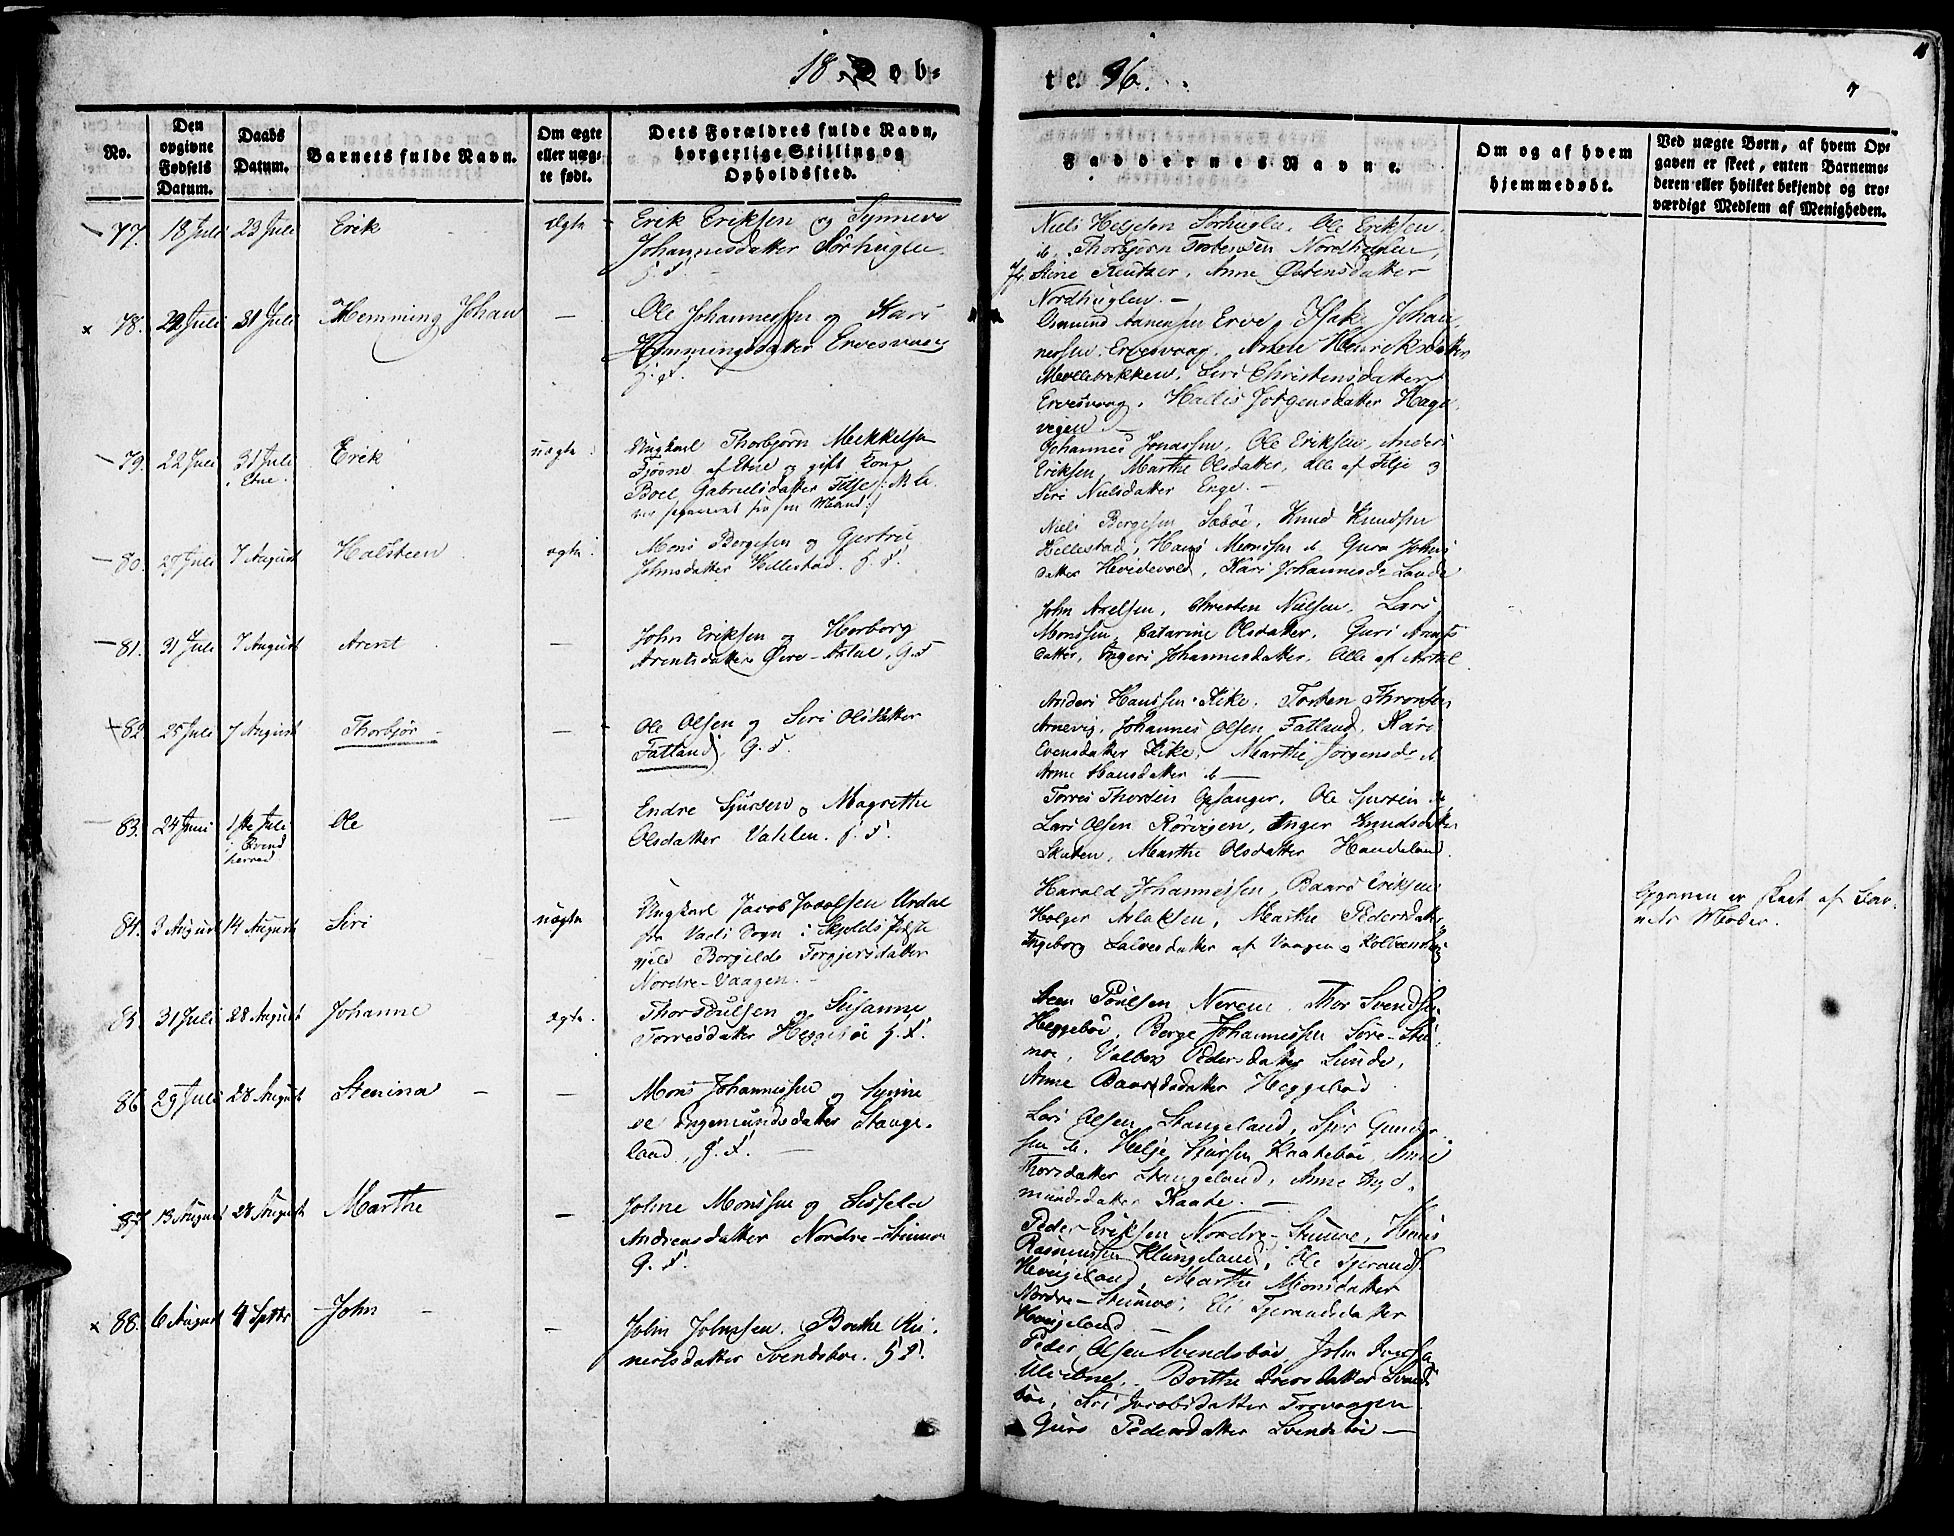 18 Døb-
te. 36.
No.
Den opgivne Fødsels Datum.
Daabs Datum.
Barnets fulde Navn.
Om ægte eller uæg- te født.
Dets Forældres fulde Navn, borgerlige Stilling og Opholdssted.
Faddernes Navne.
Om og af hvem hjemmedøbt.
Ved uægte Børn, af hvem Op- gaven er skeet, enten Barnemo- deren eller hvilket bekjendt og tro- værdigt Medlem af Menigheden.
77. 18 Juli 23 Juli Erik ægte
Erik Eriksen og Synneve
Johannesdatter Sørhuglen
Niels Helgesen Sørhuglen, Ole Eriksen
Thorbjørn Torbensen Nordhuglen,
Anne Østensdatter
Nordhuglen. —
78. 29 Juli 31 Juli Hemming Johan —
Ole Johannessen og Kari
Hemmingsdatter Ervesvaag
G. F.
Osmund Aanensen Erve, Isak Johan-
nessen Ervesvaag, Henriksdatter
Møllebekken, Siri Christensdatter
Ervesvaag, Jørgensdatter Hage-
vigen
79. 22 Juli 31 Juli i Etne. Erik uægte
Ungkarl Thorbjørn Mekkelsen
af Etne og gift Kone
Boel Gabrielsdatter Tilje
separeret fra sin Mand
Johannes Jonassen, Ole Eriksen, Anders
Eriksen, Marthe Olsdatter, alle af Tilje og
Siri Nielsdatter Enge. —
80. 27 Juli 7 August Halsteen ægte
Mons Børgesen og Gjertrud
Johnsdatter Hillestad. G. F.
Niels Børgesen Sæbøe, Knud Knudsen
Hillestad, Hans Monssen Guro Johns
datter Hevidevold, Kari Johannesd. Lande
81. 31 Juli 7 August Arent —
John Eriksen og Herborg
Arentsdatter Øvre-Axdal G. F.
John Axelsen, Christen Nielsen, Lars
Monssen, Catarine Olsdatter, Guri Arents
datter, Ingeri Johannesdatter, Alle af Axdal
82. 25 Juli 7 August Thorbjør —
Ole Olsen og Siri Olsdatter
Fatland, G. F.
Anders Hanssen Eike, Torsten
Arnevig, Johannes Olsen Fatland, Kari
Evensdatter Eike, Marthe Jørgensd.
Anne Hansdatter —
83. 24 Juni 1ste Juli i Qvind herred Ole —
Endre Sjursen og Magrethe
Olsdatter Vahlen. G. F.
Torres Thorsen Opsanger, Ole Sjursen
Lars Olsen Rørvigen, Inger Knudsdatter
Skaten, Marthe Olsdatter Handeland.
84. 3 August 14 August Siri uægte
Ungkarl Jacob Jacobsen Urdal
fra Vads Sogn i Skjolds Præste
gjeld Borgilde Torgjersdatter
Nordre-Vaagen. —
Harald Johannessen, Baard Eriksen
Holger Aslaksen, Marthe Pedersdatter
Ingeborg Salvesdatter af Vaagen
Opgaven er skeet af Bar-
nets Moder.
85. 31 Juli 28 August Johanne ægte
Thor Poulsen og Susanne
Torresdatter Heggebøe G. F.
Poulsen Nereim, Thor Svendsen
Heggebøe, Børge Johannessen Søre-Stu-
moe, Valbor Pedersdatter Lunde,
Anne Baardsdatter Heggeland
86. 29 Juli 28 August Stenina —
Mons Johannessen og Synne
ve Ingemundsdatter Stange-
land, G. F. —
Lars Olsen Stangeland, Sjur Gunder
sen Helje Sjursen Kaatebøe, Anne
Thorsdatter Stangeland, Anne
mundsdatter Kaate. —
87. 13 August 28 August Marthe —
Johne Monssen og Sissela
Andreasdatter Nordre-Stumoe
G. F.
Peder Eriksen Nordre-Stumoe, Hans
Rasmussen Klungeland, Ole Tjerandsen
Haugeland, Marthe Monsdatter
Nordre-Stumoe, Eli Tjerandsdatter
Haugeland
88. 6 August 4 Septbr John —
John Johnsen, Berthe Rei-
nertsdatter Svendsbøe. G. F.
Peder Olsen Svendsbøe, John Iversen
Ulvebnes, Berthe Iversdatter Svends
bøe, Siri Jacobsdatter Trovaagen
Guro Pedersdatter Svendsbøe —